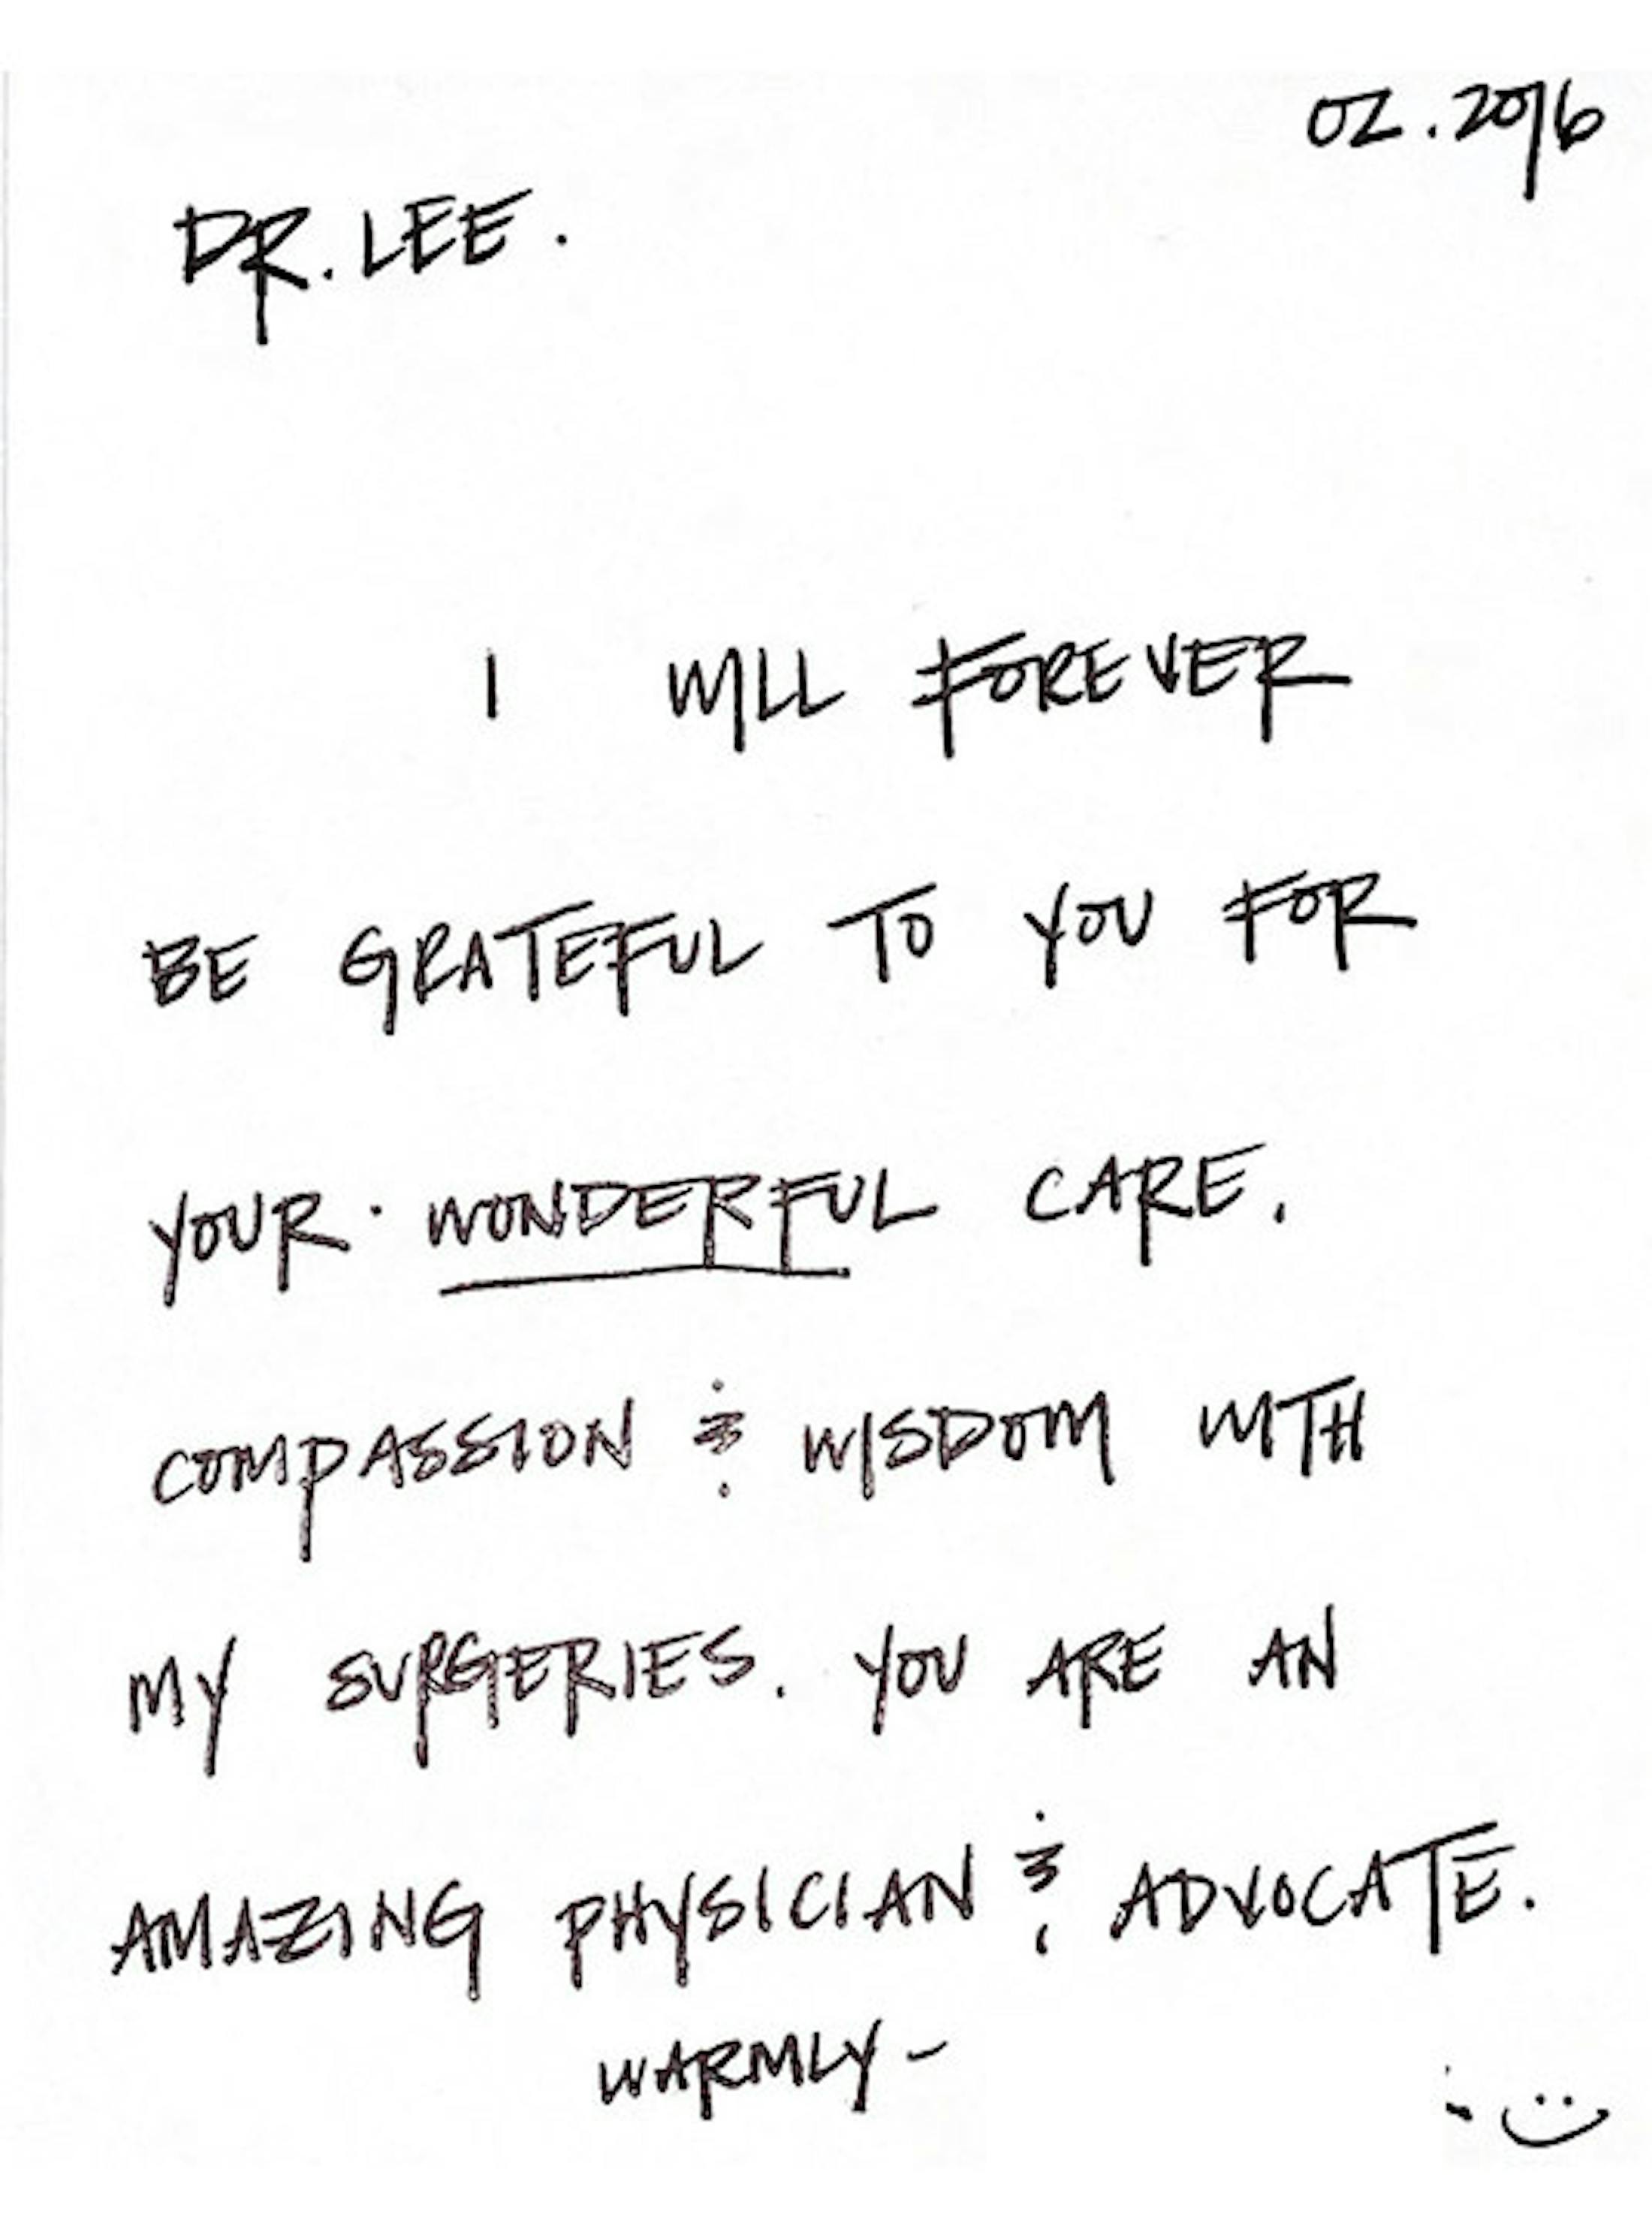 02.2016
DR. LEE.
I WILL FOREVER
BE GRATEFUL TO YOU FOR
YOUR · WONDERFUL CARE.
COMPASSION & WISDOM WITH
MY SURGERIES. YOU ARE AN
AMAZING PHYSICIAN & ADVOCATE.
WARMLY-